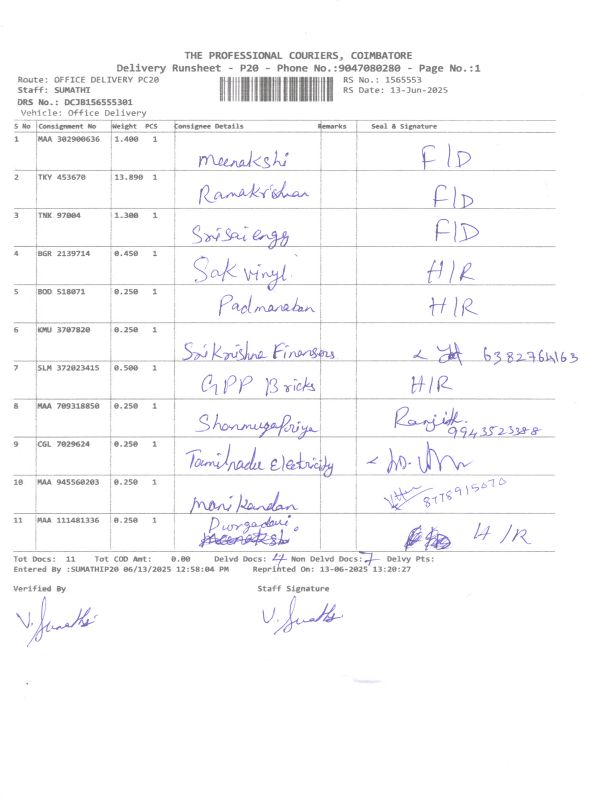 THE PROFESSIONAL COURIERS, COIMBATORE
Delivery Runsheet - P20 - Phone No.:9047080280 - Page No.:1
Route: OFFICE DELIVERY PC20 RS No.: 1565553
Staff: SUMATHI RS Date: 13-Jun-2025
DRS No.: DCJB156555301
Vehicle: Office Delivery
S No Consignment No Weight PCS Consignee Details Remarks Seal & Signature
1 MAA 302900636 1.400 1 Meenakshi F/D
2 TKY 453670 13.890 1 Ramakrishnan F/D
3 TNK 97004 1.300 1 Srisai engg F/D
4 BGR 2139714 0.450 1 Sak vinyl. H/R
5 BOD 518071 0.250 1 Padmanaban H/R
6 KMU 3707820 0.250 1 Sri Krishna Finansers 6382764163
7 SLM 372023415 0.500 1 GPP Bricks H/R
8 MAA 709318850 0.250 1 Shanmugapriya Ranjith.
9943523388
9 CGL 7029624 0.250 1 Tamilnadu Electricity
10 MAA 945560203 0.250 1 Manikandan 8778915070
11 MAA 111481336 0.250 1 Durgadevi. H/R
Tot Docs: 11 Tot COD Amt: 0.00 Delvd Docs: 4 Non Delvd Docs: 7 Delvy Pts:
Entered By :SUMATHIP20 06/13/2025 12:58:04 PM Reprinted On: 13-06-2025 13:20:27
Verified By Staff Signature
V. Sumathi V. Sumathi